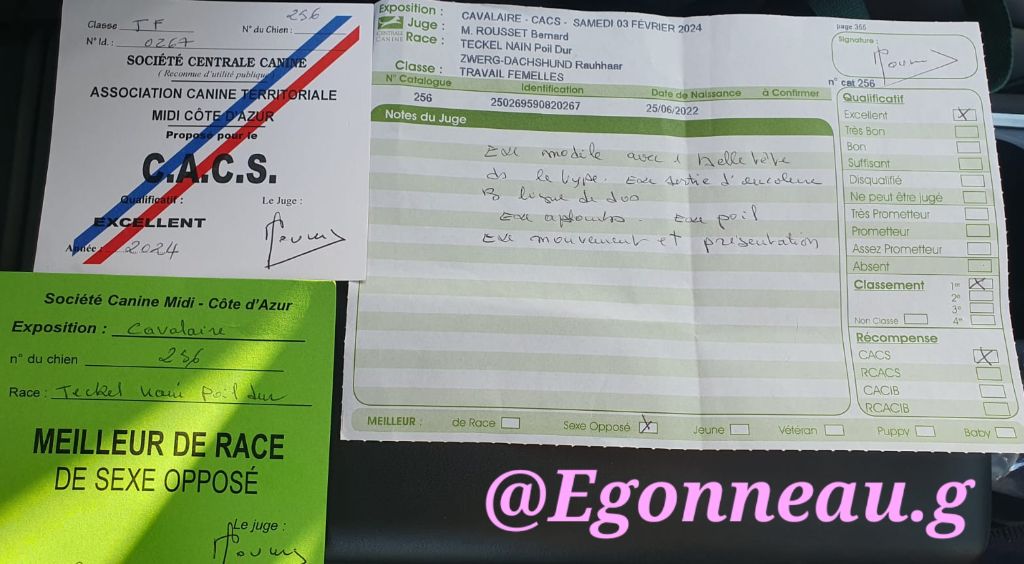 Classe TF
N° du Chien : 256
N° Id. : 0267
SOCIÉTÉ CENTRALE CANINE
( Reconnue d'utilité publique )
ASSOCIATION CANINE TERRITORIALE
MIDI CÔTE D'AZUR
Proposé pour le
C.A.C.S.
Qualificatif : Le Juge :
EXCELLENT
Année : 2024
Société Canine Midi - Côte d'Azur
Exposition : Cavalaire
n° du chien 256
Race : Teckel Nain Poil Dur
MEILLEUR DE RACE
DE SEXE OPPOSÉ
Le juge :
Exposition : CAVALAIRE - CACS - SAMEDI 03 FÉVRIER 2024
Juge : M. ROUSSET Bernard
Race : TECKEL NAIN Poil Dur
ZWERG-DACHSHUND Rauhhaar
Classe : TRAVAIL FEMELLES
CENTRALE
CANINE
N° Catalogue Identification Date de Naissance à Confirmer
256 250269590820267 25/06/2022
Notes du Juge
Exc modèle avec 1 belle tête
ds le type. Exc sortie d'encolure
B ligne de dos
Exc aplombs. Exc poil
Exc mouvement et présentation
page 355
Signature :
n° cat 256
Qualificatif
Excellent X
Très Bon
Bon
Suffisant
Disqualifié
Ne peut être jugé
Très Prometteur
Prometteur
Assez Prometteur
Absent
Classement 1er X
2e
3e
Non Classé 4e
Récompense
CACS X
RCACS
CACIB
RCACIB
MEILLEUR : de Race Sexe Opposé X Jeune Vétéran Puppy Baby
@Egonneau.g